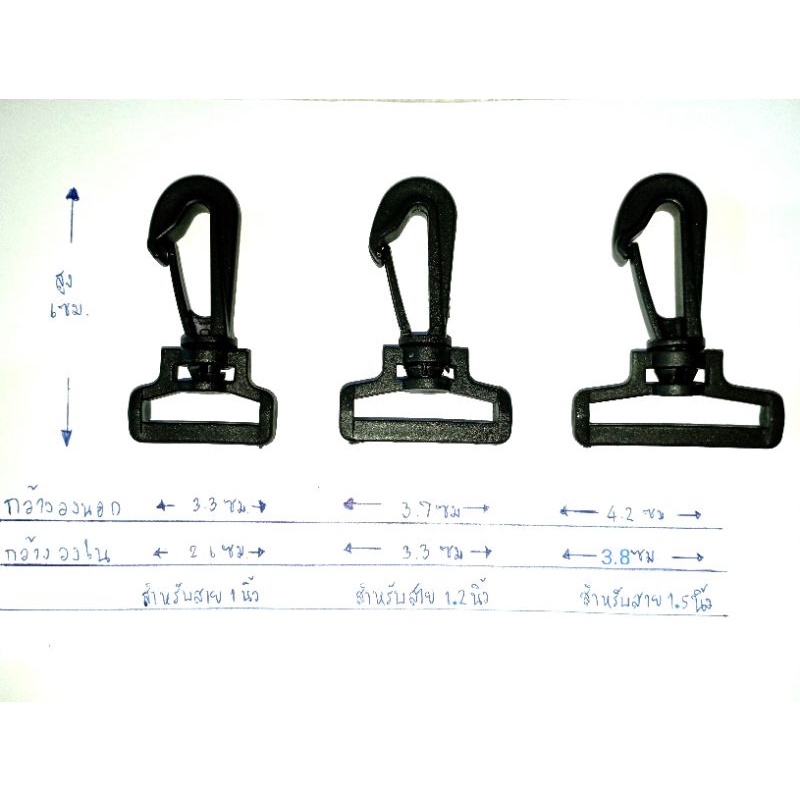 สูง
6 ซม.
กว้างองนอก 3.3 ซม. 3.7 ซม 4.2 ซม
กว้างองใน 2.6 ซม 3.3 ซม 3.8 ซม
สำหรับสาย 1 นิ้ว สำหรับสาย 1.2 นิ้ว สำหรับสาย 1.5 นิ้ว